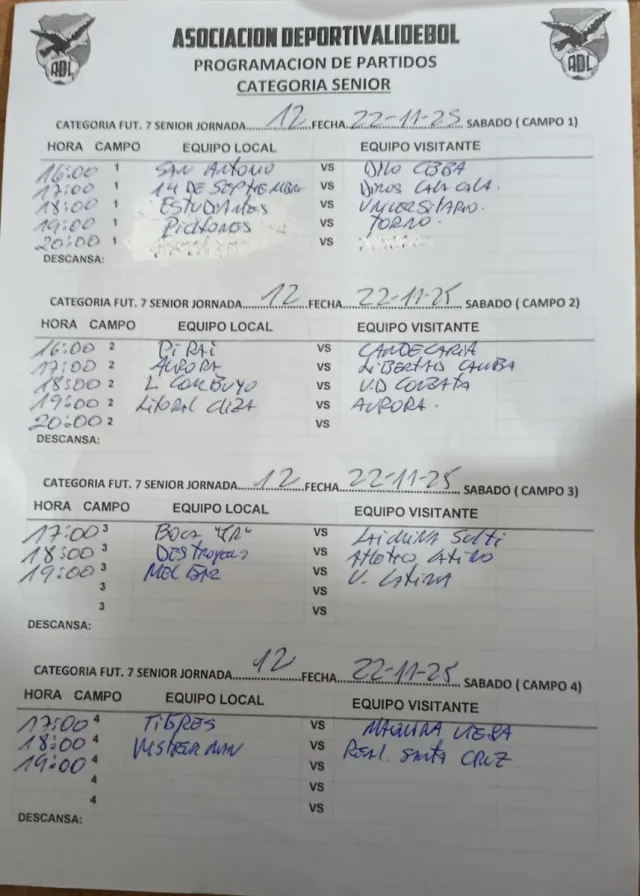 ADL
ASOCIACION DEPORTIVALIDEBOL
ADL
PROGRAMACION DE PARTIDOS
CATEGORIA SENIOR
CATEGORIA FUT. 7 SENIOR JORNADA 12 FECHA 22-11-25 SABADO ( CAMPO 1)
HORA CAMPO EQUIPO LOCAL EQUIPO VISITANTE
16:00 1 SAN ANTONIO VS DINO CBBA
17:00 1 14 DE SEPTIEMBRE VS DINOS CALA CALA.
18:00 1 ESTUDIANTES VS UNIVERSITARIO.
19:00 1 PICHONES VS TORNO.
20:00 1 VS
DESCANSA:
CATEGORIA FUT. 7 SENIOR JORNADA 12 FECHA 22-11-25 SABADO ( CAMPO 2)
HORA CAMPO EQUIPO LOCAL EQUIPO VISITANTE
16:00 2 PIRAI VS CANDELARIA
17:00 2 AURORA VS LIBERTAD CAMBA
18:00 2 L. COMBUYO VS U.D
19:00 2 LITORAL CLIZA VS AURORA.
20:00 2 VS
DESCANSA:
CATEGORIA FUT. 7 SENIOR JORNADA 12 FECHA 22-11-25 SABADO ( CAMPO 3)
HORA CAMPO EQUIPO LOCAL EQUIPO VISITANTE
17:00 3 BOCA VS
18:00 3 DESTROYERS VS ATLETICO LATINO
19:00 3 VS U. LATINA
3 VS
3 VS
DESCANSA:
CATEGORIA FUT. 7 SENIOR JORNADA 12 FECHA 22-11-25 SABADO ( CAMPO 4)
HORA CAMPO EQUIPO LOCAL EQUIPO VISITANTE
17:00 4 TIGRES VS MAQUINA VIERA
18:00 4 VISTERMAN VS REAL. SANTA CRUZ
19:00 4 VS
4 VS
4 VS
DESCANSA: